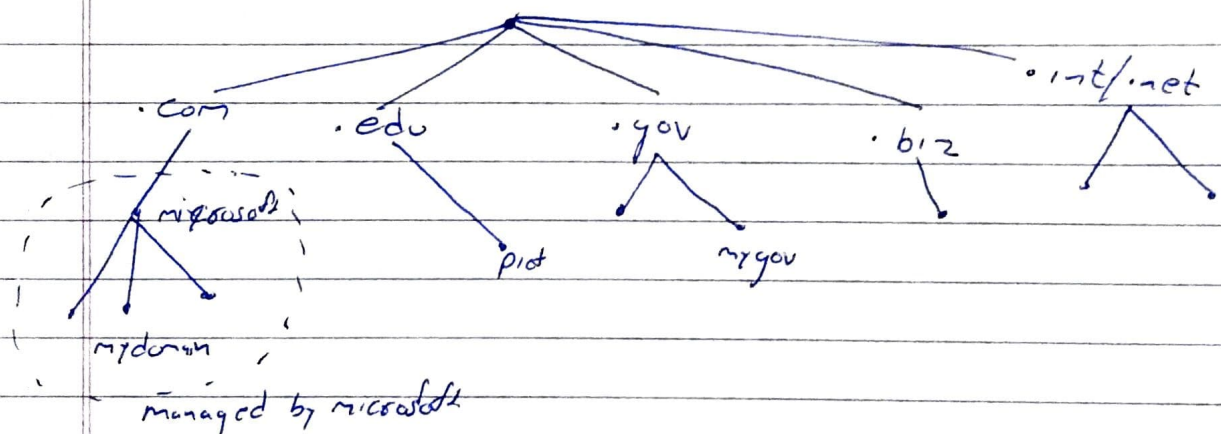 .com .edu .gov .biz .int/.net
microsoft
mygov
mydomain
managed by microsoft